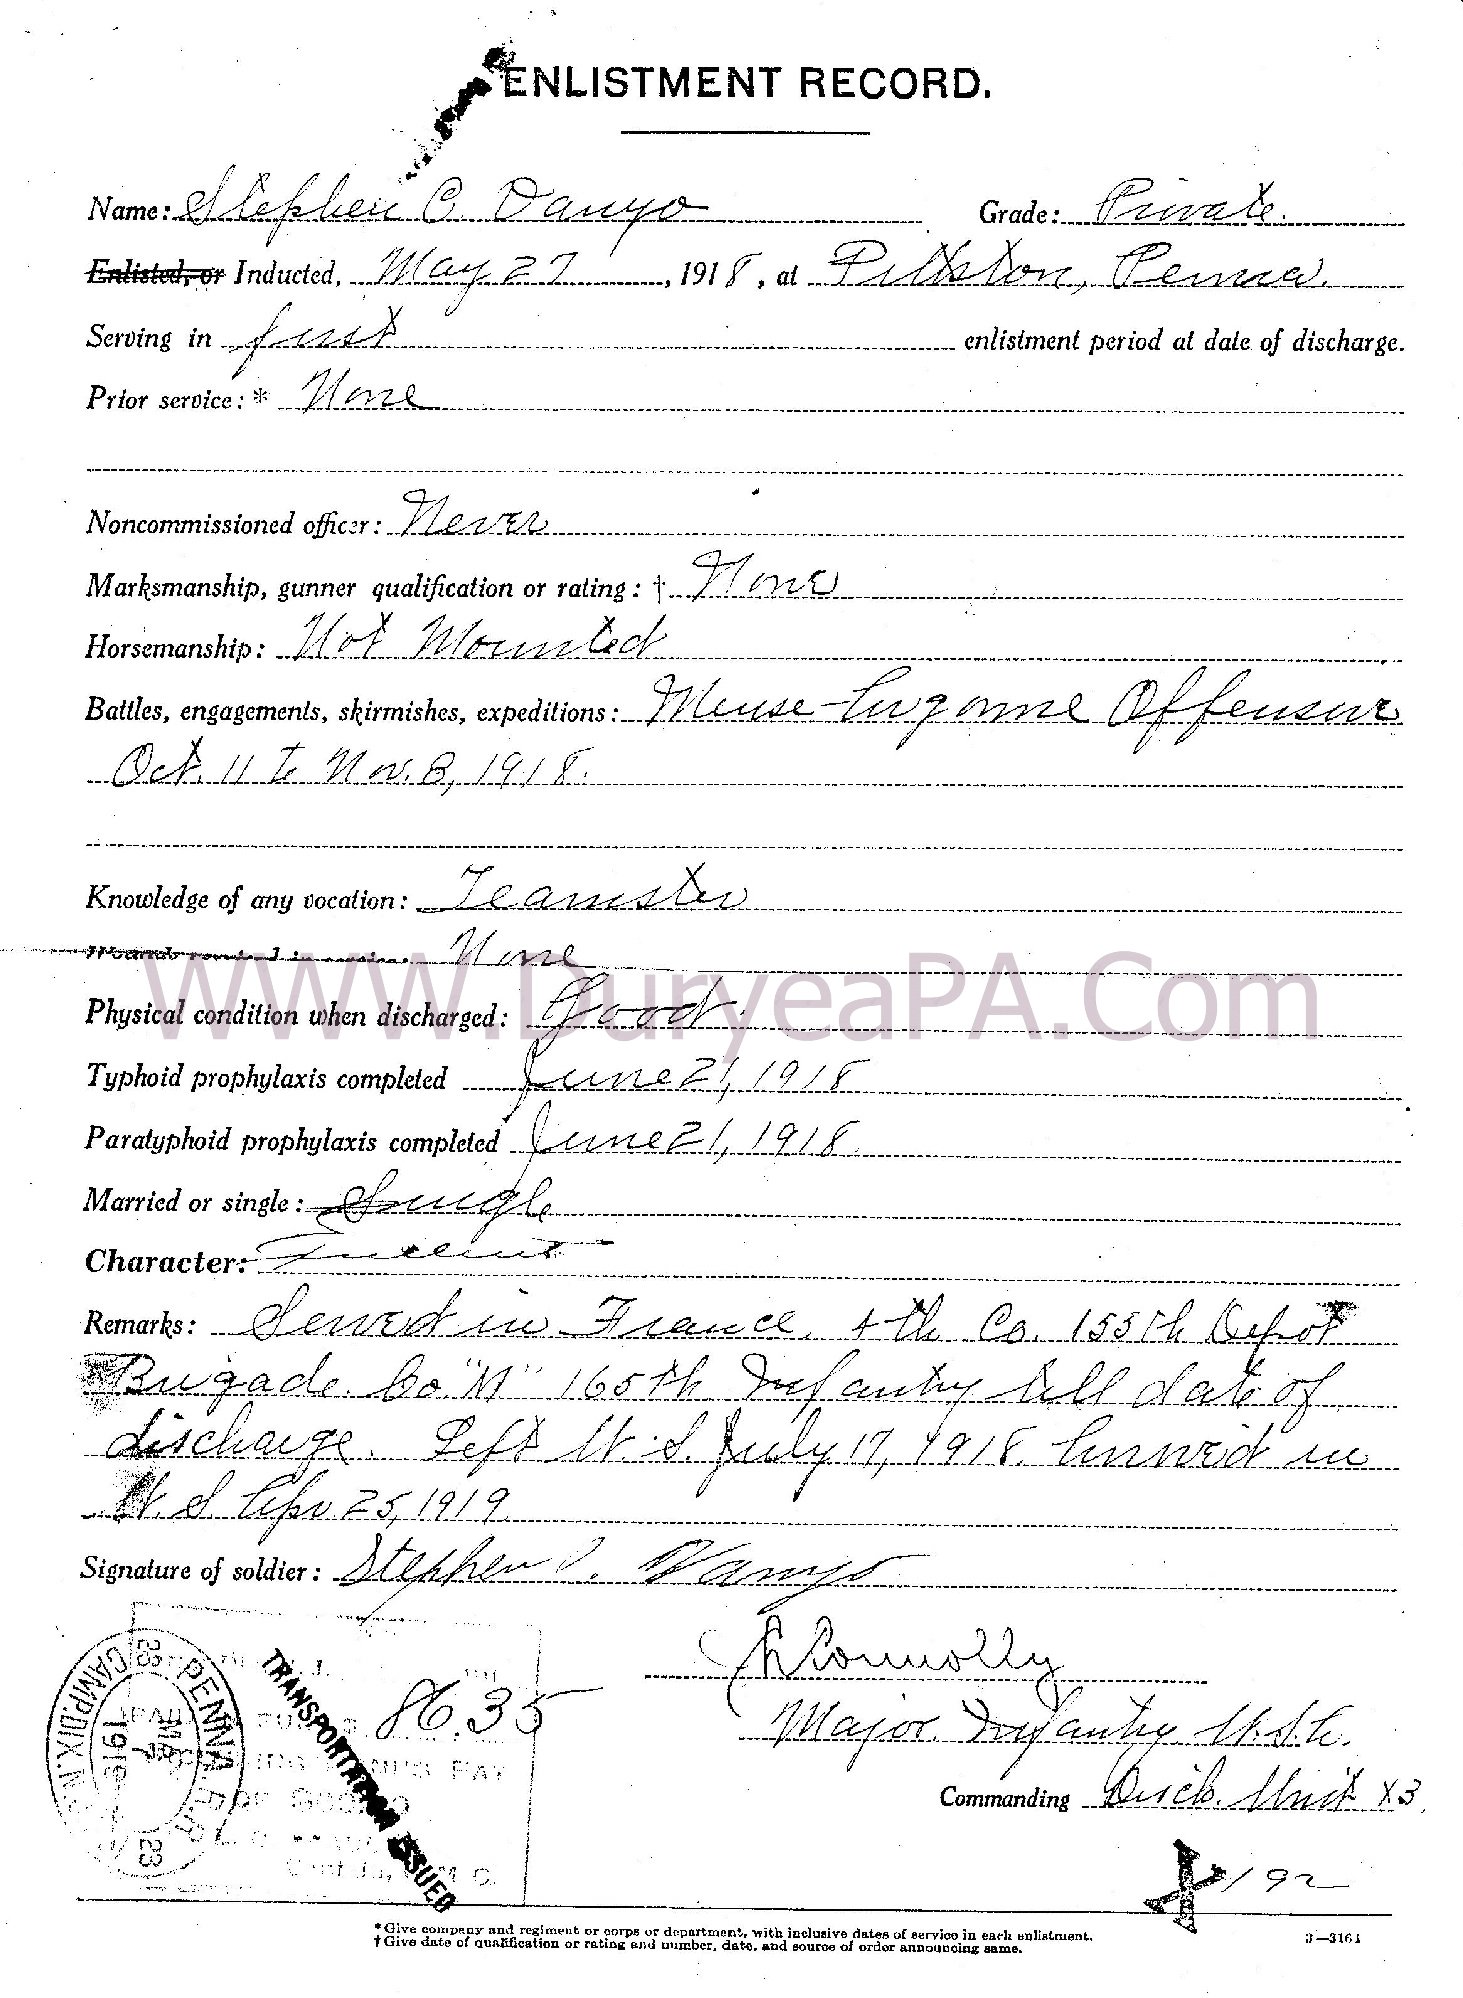 ENLISTMENT RECORD.
Name: Stephen C. Danyo Grade: Private.
Enlisted, or Inducted, May 27, 1918, at Pittston, Penna.
Serving in first enlistment period at date of discharge.
Prior service:* None
Noncommissioned officer: Never
Marksmanship, gunner qualification or rating:† None
Horsemanship: Not Mounted
Battles, engagements, skirmishes, expeditions: Meuse-Argonne Offensive
Oct. 11 to Nov. 8, 1918.
Knowledge of any vocation: Teamster
Wounds received in service: None
www.DuryeaPA.Com
Physical condition when discharged: Good.
Typhoid prophylaxis completed June 21, 1918
Paratyphoid prophylaxis completed June 21, 1918.
Married or single: Single
Character: Excellent
Remarks: Served in France. 4th Co. 155th Depot
Brigade. Co. "M" 165th Infantry till date of
discharge. Left U.S. July 17, 1918. Arrived in
U.S. Apr. 25, 1919.
Signature of soldier: Stephen C. Danyo
Connolly
86.35
PENNA
CAMP DIX N.J.
TRANSPORTATION ISSUED
Major. Infantry U.S.A.
Commanding Disch. Unit X3
192
*Give company and regiment or corps or department, with inclusive dates of service in each enlistment.
†Give date of qualification or rating and number, date, and source of order announcing same.
3—3164